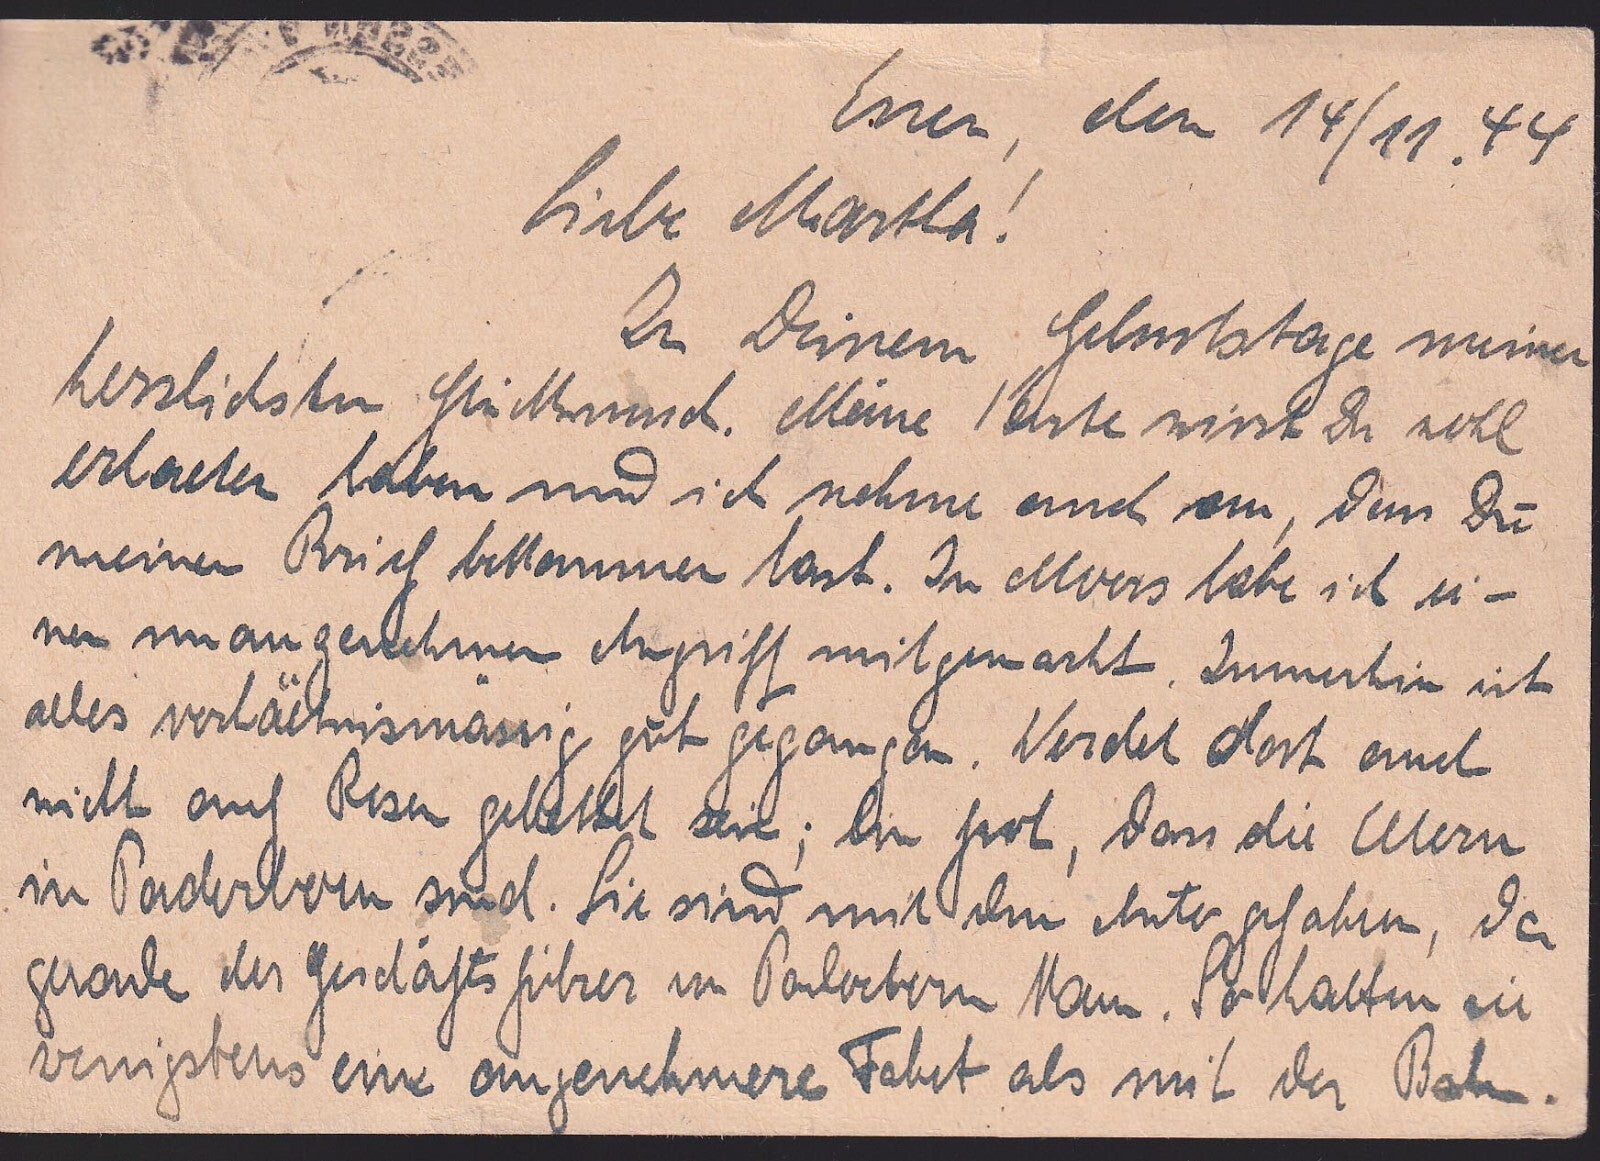 Essen, den 14/11.44
Liebe Martha!
Zu Deinem Geburtstage meinen
herzlichsten Glückwunsch. Meine Karte wirst Du wohl
erhalten haben und ich nehme auch an, dass Du
meinen Brief bekommen hast. In Moers habe ich ei-
nen unangenehmen Angriff mitgemacht. Immerhin ist
alles verhältnismässig gut gegangen. Werdet dort auch
nicht auf Rosen gebettet sein; bin froh, dass die Eltern
in Paderborn sind. Sie sind mit dem Auto gefahren, da
gerade der Geschäftsführer von Paderborn kam. So hatten sie
wenigstens eine angenehmere Fahrt als mit der Bahn.